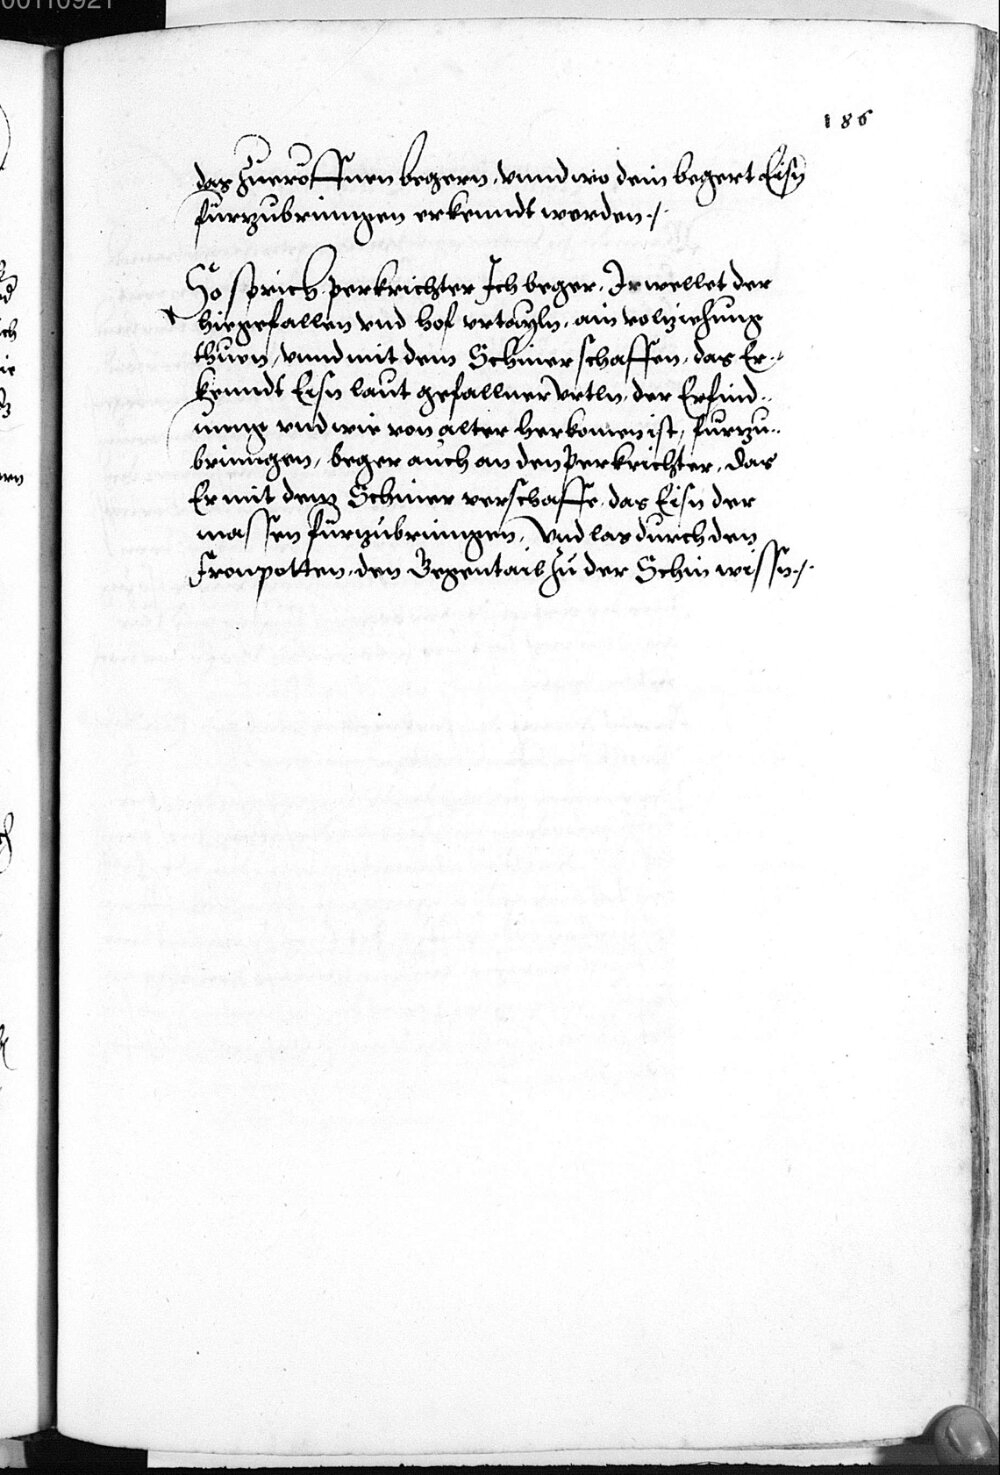 186
das Zueröffnen begern, vnnd wo dein begert Eisn
fürzubringen erkenndt werden ./.
So sprich, Perkrichter Ich beger, Ir wellet der
hiegefallen vnd hof vrtayln, ain volziehung
thuen, vnnd mit dem Schiner schaffen, das Er-
kenndt Eisn laut gefallner vrtln, der Erfind-
nung vnd wie von alter herkomen ist, furzu-
bringen, beger auch an den Perkrichter, das
Er mit dem Schiner verschaffe, das Eisn der
massen fürzubringen, Vnd las durch den
Fronpotten, den Gegentail zu der Schin wissn ./.